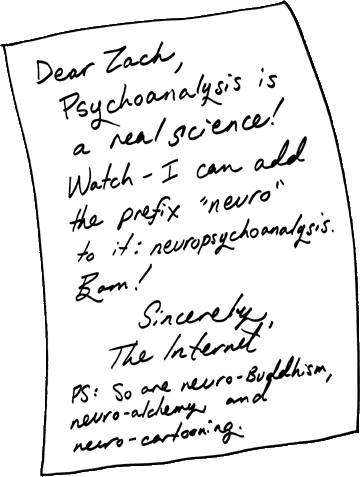 Dear Zach,
Psychoanalysis is
a real science!
Watch - I can add
the prefix "neuro"
to it: neuropsychoanalysis.
Bam!
Sincerely,
The Internet
PS: So are neuro-Buddhism,
neuro-alchemy and
neuro-cartooning.